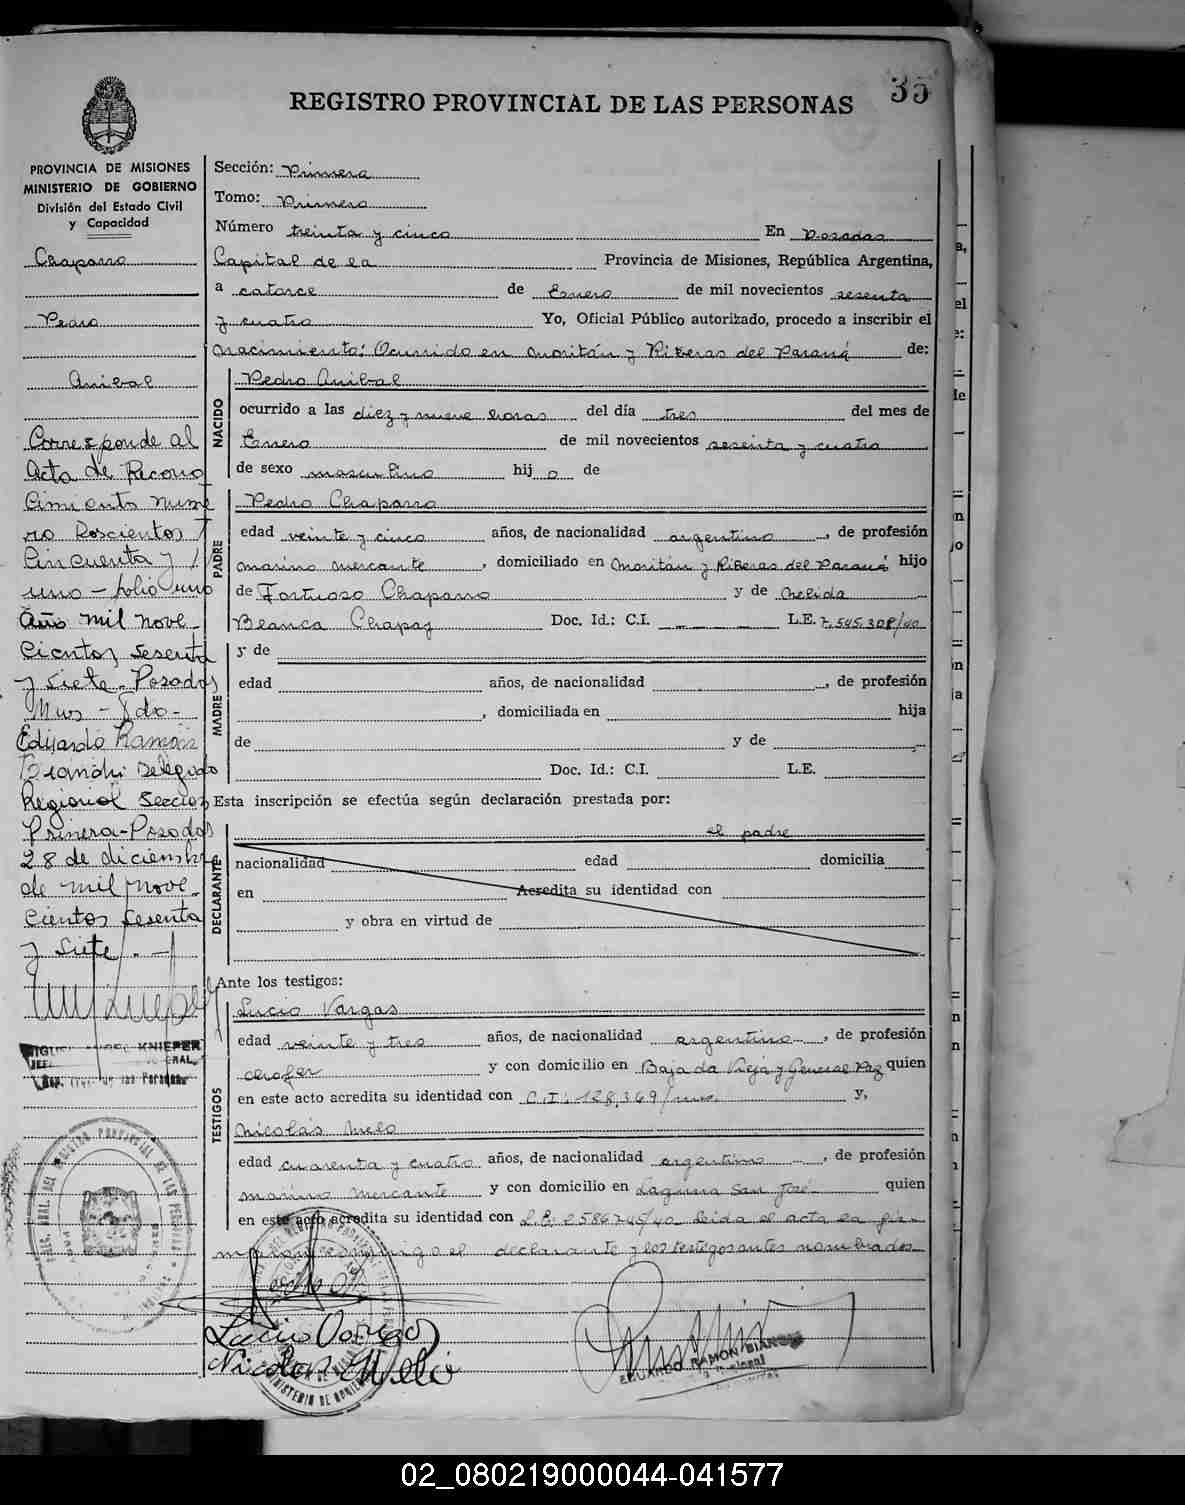 35
REGISTRO PROVINCIAL DE LAS PERSONAS
PROVINCIA DE MISIONES
MINISTERIO DE GOBIERNO
División del Estado Civil
y Capacidad
Chaparro
Pedro
Anibal
Corresponde al
Acta de Recono
cimiento núme
ro Doscientos
Cincuenta y
uno - folio uno
Año mil nove
cientos sesenta
y siete. Posadas
Mnes - Fdo -
Eduardo Ramón
Bianchi Delegado
Regional Sección
Primera-Posadas
28 de diciembre
de mil nove
cientos sesenta
y siete. -
KNIEPER
Sección: Primera
Tomo: Primero
Número treinta y cinco En Posadas
Capital de la Provincia de Misiones, República Argentina,
a catorce de Enero de mil novecientos sesenta
y cuatro Yo, Oficial Público autorizado, procedo a inscribir el
nacimiento: Ocurrido en Moritán y Riberas del Paraná de:
NACIDO
Pedro Anibal
ocurrido a las diez y nueve horas del día tres del mes de
Enero de mil novecientos sesenta y cuatro
de sexo masculino hij o de
PADRE
Pedro Chaparro
edad veinte y cinco años, de nacionalidad argentino, de profesión
marino mercante, domiciliado en Moritán y Riberas del Paraná hijo
de Fortuoso Chaparro y de Nelida
Blanca Chapay Doc. Id.: C.I. L.E. 7.545.308/40
MADRE
y de
edad años, de nacionalidad , de profesión
, domiciliada en hija
de y de
Doc. Id.: C.I. L.E.
Esta inscripción se efectúa según declaración prestada por:
DECLARANTE
el padre
nacionalidad edad domicilia
en Acredita su identidad con
y obra en virtud de
Ante los testigos:
TESTIGOS
Lucio Vargas
edad veinte y tres años, de nacionalidad argentino, de profesión
chofer y con domicilio en Bajada Vieja y General Paz quien
en este acto acredita su identidad con C.I: 128.369/mnes. y,
Nicolás Melo
edad cuarenta y cuatro años, de nacionalidad argentino, de profesión
marino mercante y con domicilio en Laguna San José quien
en este acto acredita su identidad con Leida el acta la fir-
man conmigo el declarante y los testigos antes nombrados
Lucio Vargas
Nicolas Melo
EDUARDO RAMON BIANCHI
02_080219000044-041577